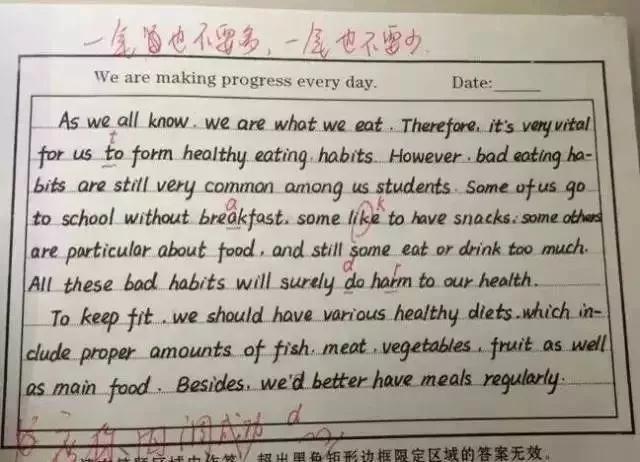 一笔也不要多，一笔也不要少.
We are making progress every day. Date:
As we all know, we are what we eat. Therefore, it's very vital
t
for us to form healthy eating habits. However, bad eating ha-
bits are still very common among us students. Some of us go
a k
to school without breakfast, some like to have snacks, some others
are particular about food, and still some eat or drink too much.
d r
All these bad habits will surely do harm to our health.
To keep fit, we should have various healthy diets, which in-
clude proper amounts of fish, meat, vegetables, fruit as well
as main food. Besides, we'd better have meals regularly.
成功 d
区域内作答，超出黑色矩形边框限定区域的答案无效。